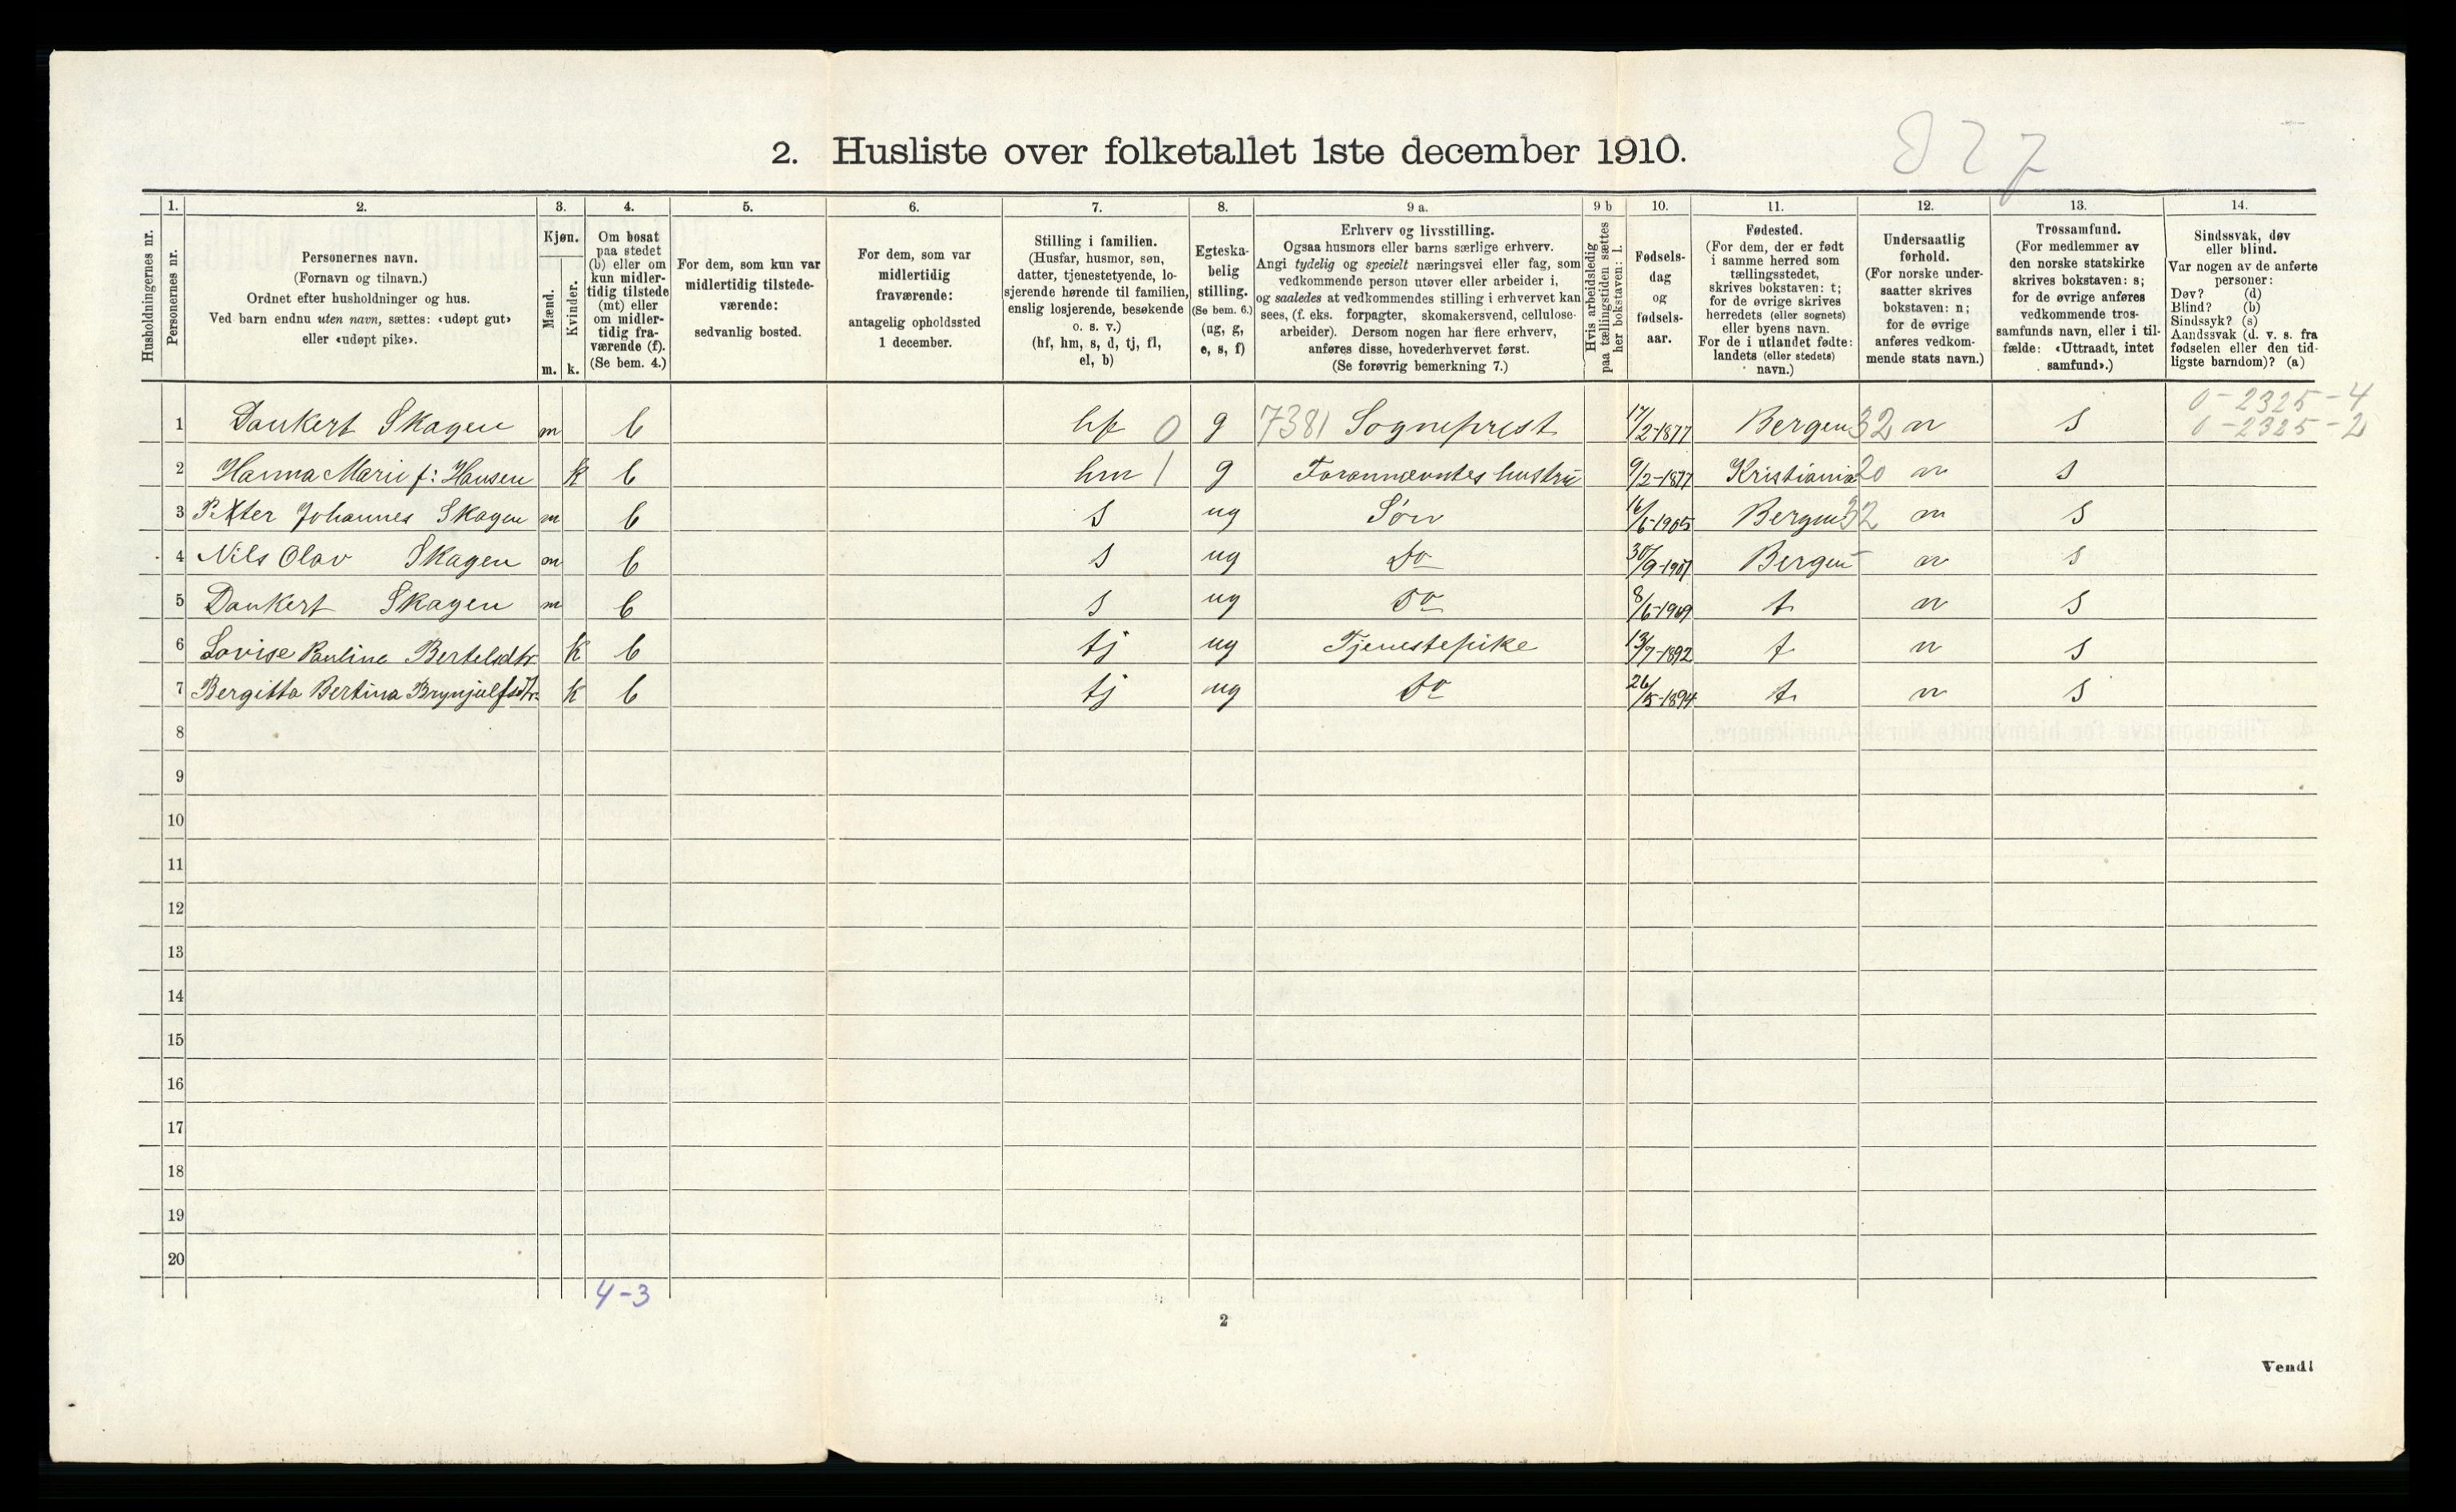 827
2. Husliste over folketallet 1ste december 1910.
Husholdningernes nr.
1.
Personernes nr.
2.
Personernes navn.
(Fornavn og tilnavn.)
Ordnet efter husholdninger og hus.
Ved barn endnu uten navn, sættes: «udøpt gut»
eller «udøpt pike».
3.
Kjøn.
Mænd.
Kvinder.
m. k.
4.
Om bosat
paa stedet
(b) eller om
kun midler-
tidig tilstede
(mt) eller
om midler-
tidig fra-
værende (f).
(Se bem. 4.)
5.
For dem, som kun var
midlertidig tilstede-
værende:
sedvanlig bosted.
6.
For dem, som var
midlertidig
fraværende:
antagelig opholdssted
1 december.
7.
Stilling i familien.
(Husfar, husmor, søn,
datter, tjenestetyende, lo-
sjerende hørende til familien,
enslig losjerende, besøkende
o. s. v.)
(hf, hm, s, d, tj, fl,
el, b)
8.
Egteska-
belig
stilling.
(Se bem. 6.)
(ug, g,
e, s, f)
9 a.
Erhverv og livsstilling.
Ogsaa husmors eller barns særlige erhverv.
Angi tydelig og specielt næringsvei eller fag, som
vedkommende person utøver eller arbeider i,
og saaledes at vedkommendes stilling i erhvervet kan
sees, (f. eks. forpagter, skomakersvend, cellulose-
arbeider). Dersom nogen har flere erhverv,
anføres disse, hovederhvervet først.
(Se forøvrig bemerkning 7.)
9 b
Hvis arbeidsledig
paa tællingstiden sættes
her bokstaven: l.
10.
Fødsels-
dag
og
fødsels-
aar.
11.
Fødested.
(For dem, der er født
i samme herred som
tællingsstedet,
skrives bokstaven: t;
for de øvrige skrives
herredets (eller sognets)
eller byens navn.
For de i utlandet fødte:
landets (eller stedets)
navn.)
12.
Undersaatlig
forhold.
(For norske under-
saatter skrives
bokstaven: n;
for de øvrige
anføres vedkom-
mende stats navn.)
13.
Trossamfund.
(For medlemmer av
den norske statskirke
skrives bokstaven: s;
for de øvrige anføres
vedkommende tros-
samfunds navn, eller i til-
fælde: «Uttraadt, intet
samfund».)
14.
Sindssvak, døv
eller blind.
Var nogen av de anførte
personer:
Døv? (d)
Blind? (b)
Sindssyk? (s)
Aandssvak (d. v. s. fra
fødselen eller den tid-
ligste barndom)? (a)
0-2325-4
1 Dankert Skagen m b hf 0 g 7381 Sogneprest 17/2-1877 Bergen 32 n s 0-2325-2
2 Hanna Marie f: Hansen k b hm 1 g Forannævntes hustru 9/2-1877 Kristiania 20 n s
3 Petter Johannes Skagen m b s ug Søn 16/6-1905 Bergen 32 n s
4 Nils Olav Skagen m b s ug Do 30/9-1907 Bergen n s
5 Dankert Skagen m b s ug Do 8/6-1909 t n s
6 Lovise Pauline Bertelsdtr k b tj ug Tjenestepike 13/7-1892 t n s
7 Bergitta Bertina Brynjulfsdtr. k b tj ug Do 26/5-1894 t n s
8
9
10
11
12
13
14
15
16
17
18
19
20
4-3
2
Vend!